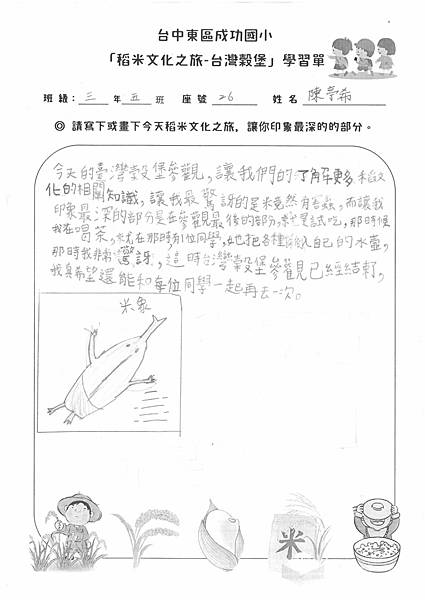 台中東區成功國小
「稻米文化之旅-台灣穀堡」學習單
班級：三 年 五 班 座號 26 姓名 陳 希
◎ 請寫下或畫下今天稻米文化之旅，讓你印象最深的的部分。
今天的臺灣穀堡參觀，讓我們的了解更多稻文
化的相關知識，讓我最驚訝的是米竟然有害蟲，而讓我
印象最深的部分是在參觀最後的部分，就是試吃，那時候
我在喝茶，就在那時有1位同學，她把各種 入自己的水壺，
那時我非常驚訝，這時台灣穀堡參觀已經結束，
我真希望還能和每位同學一起再去一次。
米象
米